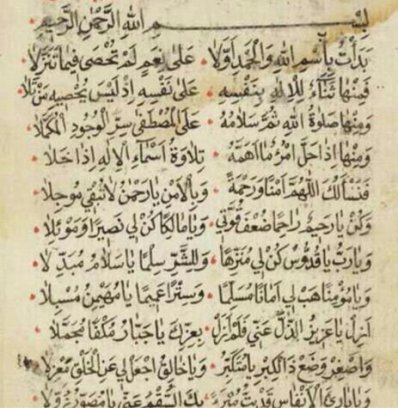 بِسْمِ اللهِ الرَّحْمٰنِ الرَّحِيمِ
بَدَأْتُ بِاسْمِ اللهِ وَالْحَمْدِ أَوَّلَا عَلَى نِعَمٍ لَمْ تُحْصَى فِيمَا تَنَزَّلَا
فَمِنْهَا ثَنَاءُ لِلْإِلٰهِ بِنَفْسِهِ عَلَى نَفْسِهِ إِذْ لَيْسَ يُحْصِيهِ مَنْ تَلَا
وَمِنْهَا صَلَاةُ اللهِ ثُمَّ سَلَامُهُ عَلَى الْمُصْطَفَى سِرِّ الْوُجُودِ الْمُكَمَّلَا
وَمِنْهَا إِذَا حَلَّ امْرُءٌ مَا أَهَمَّهُ تِلَاوَةُ أَسْمَاءِ الْإِلٰهِ إِذَا خَلَا
فَنَسْأَلُكَ اللّٰهُمَّ أَمْنًا وَرَحْمَةً وَبِالْأَمْنِ يَا رَحْمٰنُ لَا تُبْقِ مُوجِلَا
وَكُنْ يَا رَحِيمُ رَاحِمًا ضُعْفَ قُوَّتِي وَيَا مَالِكًا كُنْ لِي نَصِيرًا وَمَوْئِلَا
وَيَا رَبِّ يَا قُدُّوسُ كُنْ لِي مُنَزِّهًا وَلِلشَّرِّ سِلْمًا يَا سَلَامُ مُبَدِّلَا
وَيَا مُؤْمِنًا هَبْ لِي أَمَانًا مُسَلَّمًا وَسِتْرًا عَمِيمًا يَا مُهَيْمِنُ مُسْبِلَا
أَزِلْ يَا عَزِيزُ الذُّلَّ عَنِّي فَلَمْ أَزَلْ بِعِزِّكَ يَا جَبَّارُ مُكْفًا مُجَمَّلَا
وَاصْغِرْ وَضَعْ ذَا الْكِبْرِ يَا مُتَكَبِّرُ وَيَا خَالِقُ اجْعَلْ لِي عَنِ الْخَلْقِ مَعْزِلَا
وَيَا بَارِئَ الْأَنْفَاسِ بِكَ السُّقْمُ عَنِّي يَا مُصَوِّرُ